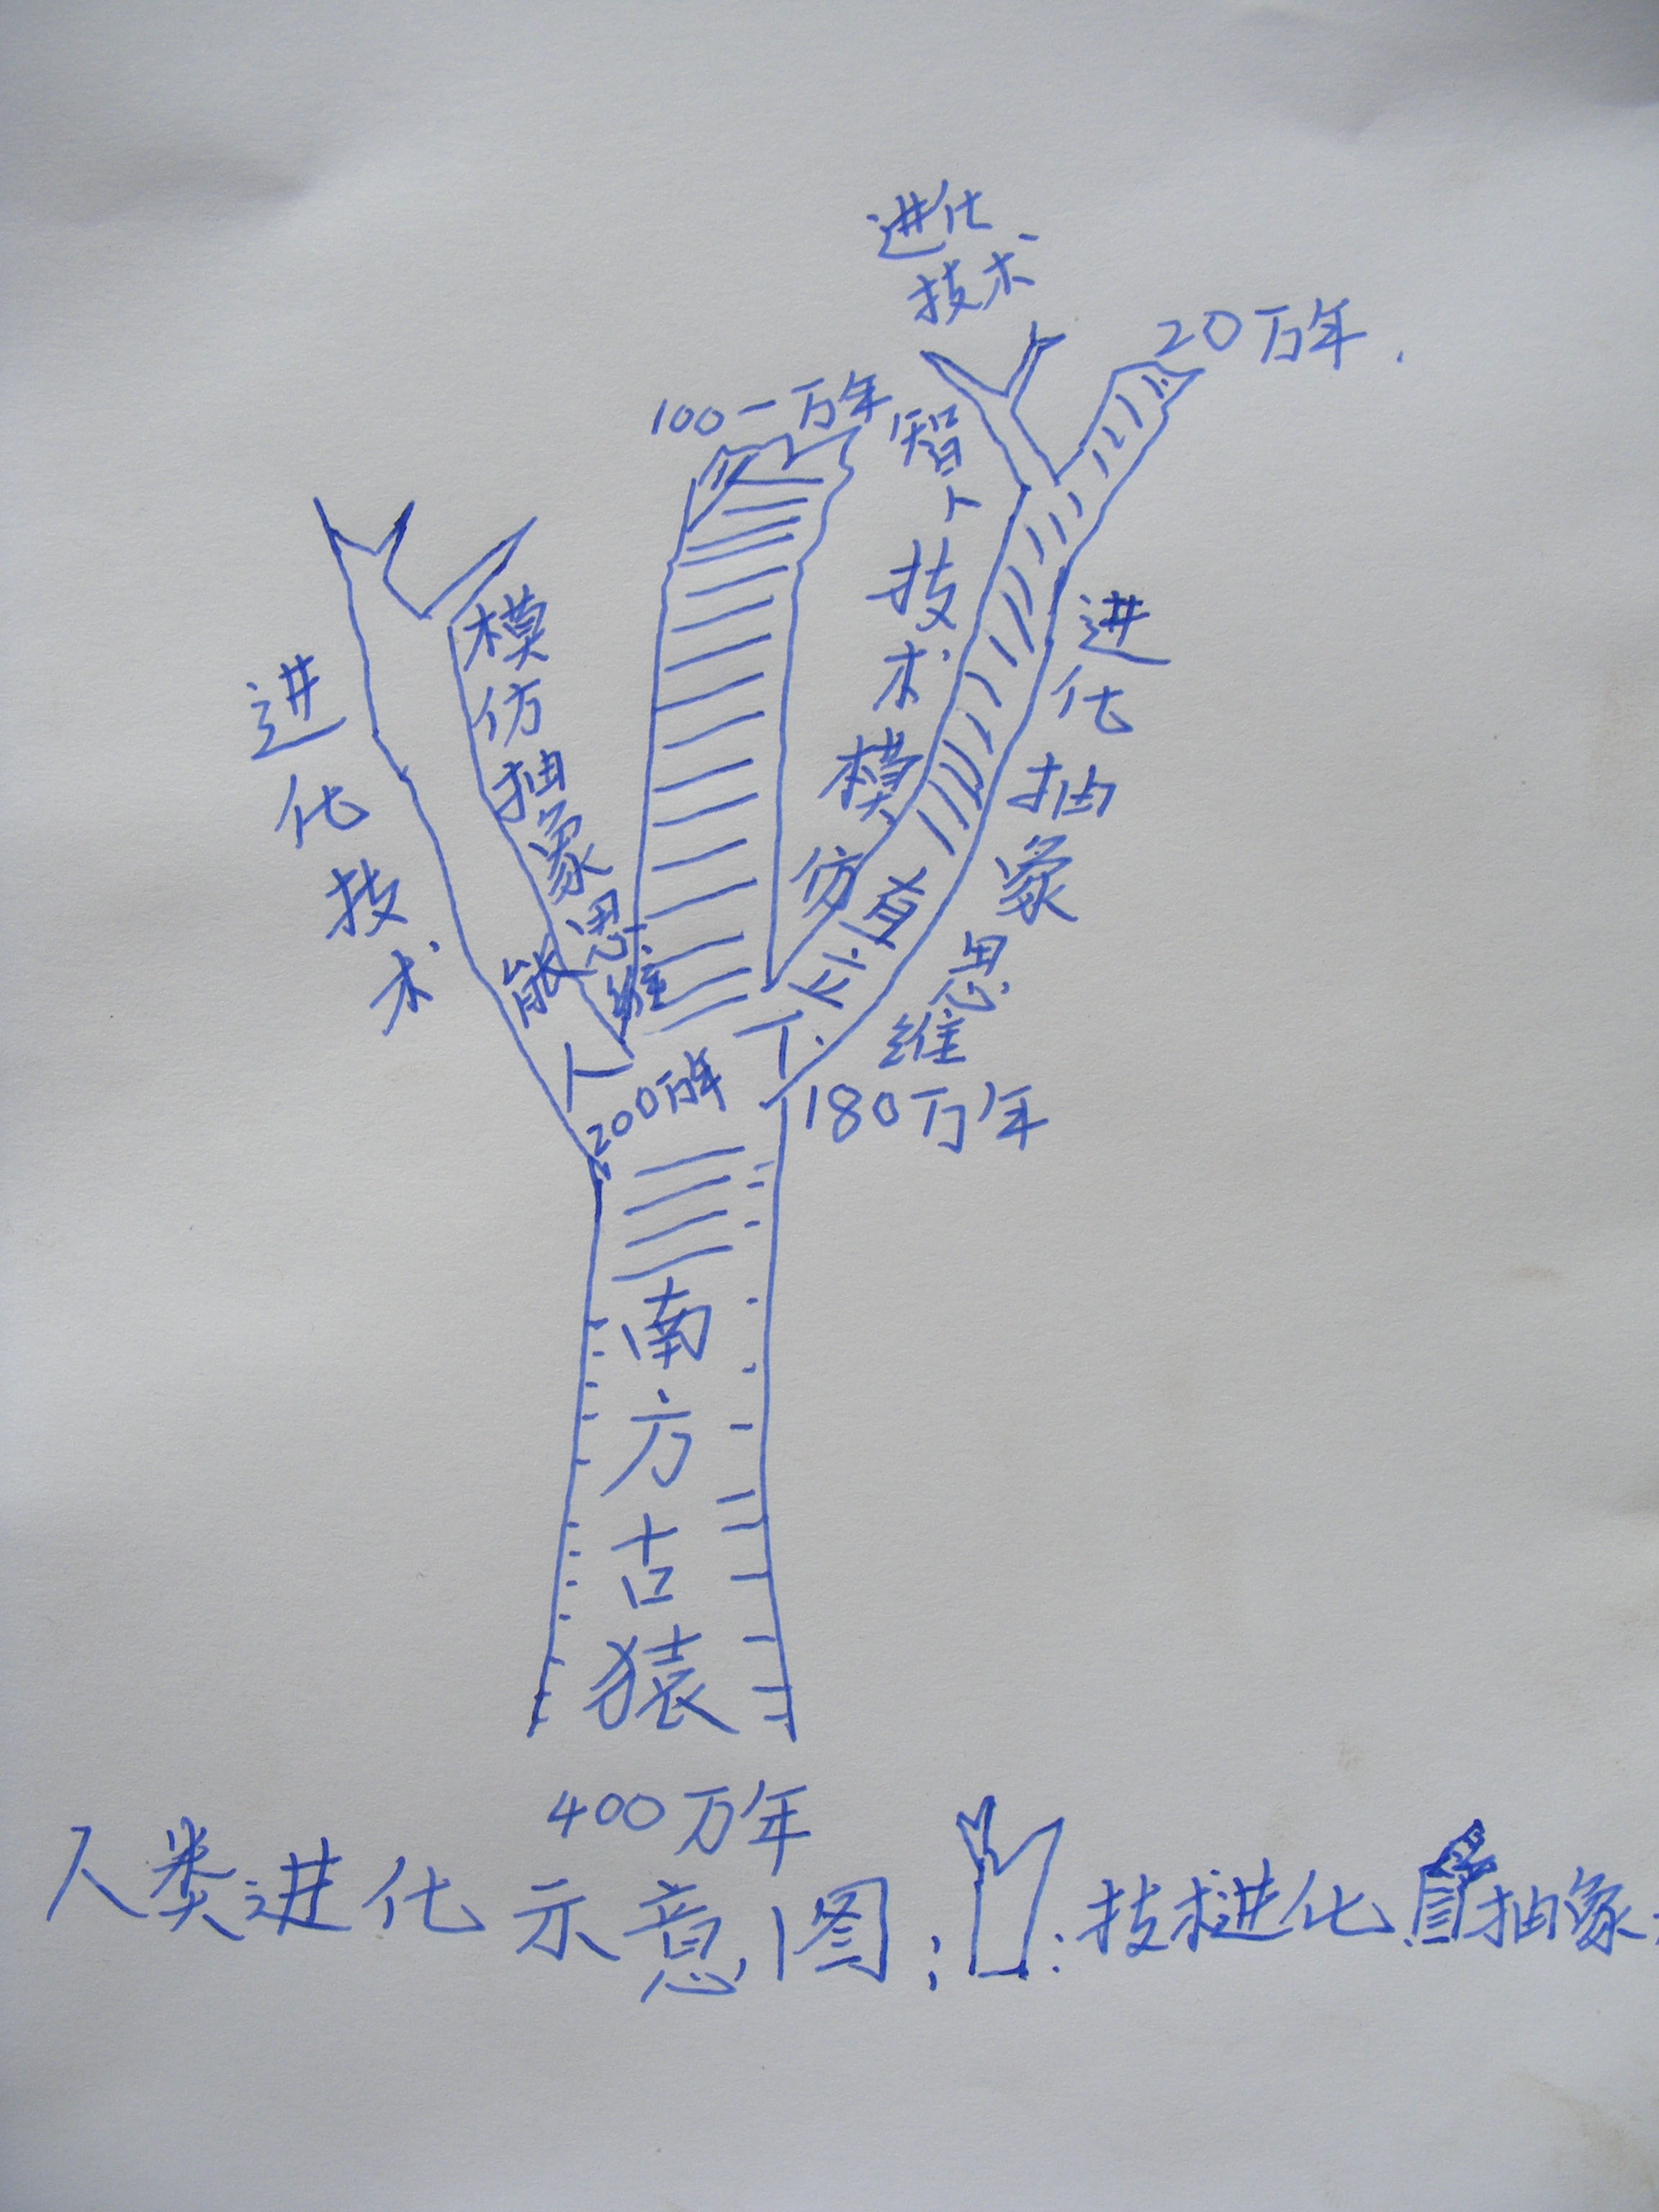 进化
技术
20万年
100一万年
智人技术模仿
进化技术
模仿抽象思维
能人
直立人
进化抽象思维
200万年
180万年
南方古猿
400万年
人类进化示意图；：技术进化 抽象